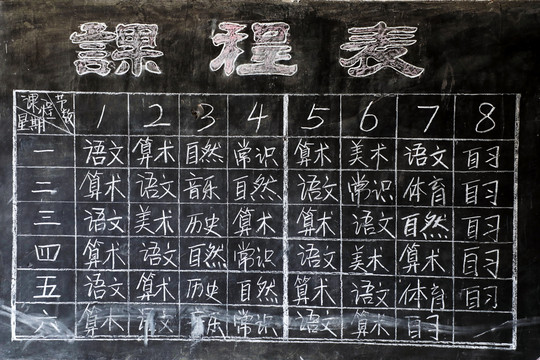 課程表
课程 节数 星期 1 2 3 4 5 6 7 8
一 语文 算术 自然 常识 算术 美术 语文 自习
二 算术 语文 音乐 自然 语文 常识 体育 自习
三 语文 美术 历史 算术 算术 语文 自然 自习
四 算术 语文 自然 常识 语文 美术 算术 自习
五 语文 算术 历史 自然 算术 语文 体育 自习
六 算术 语文 音乐 常识 语文 算术 自习